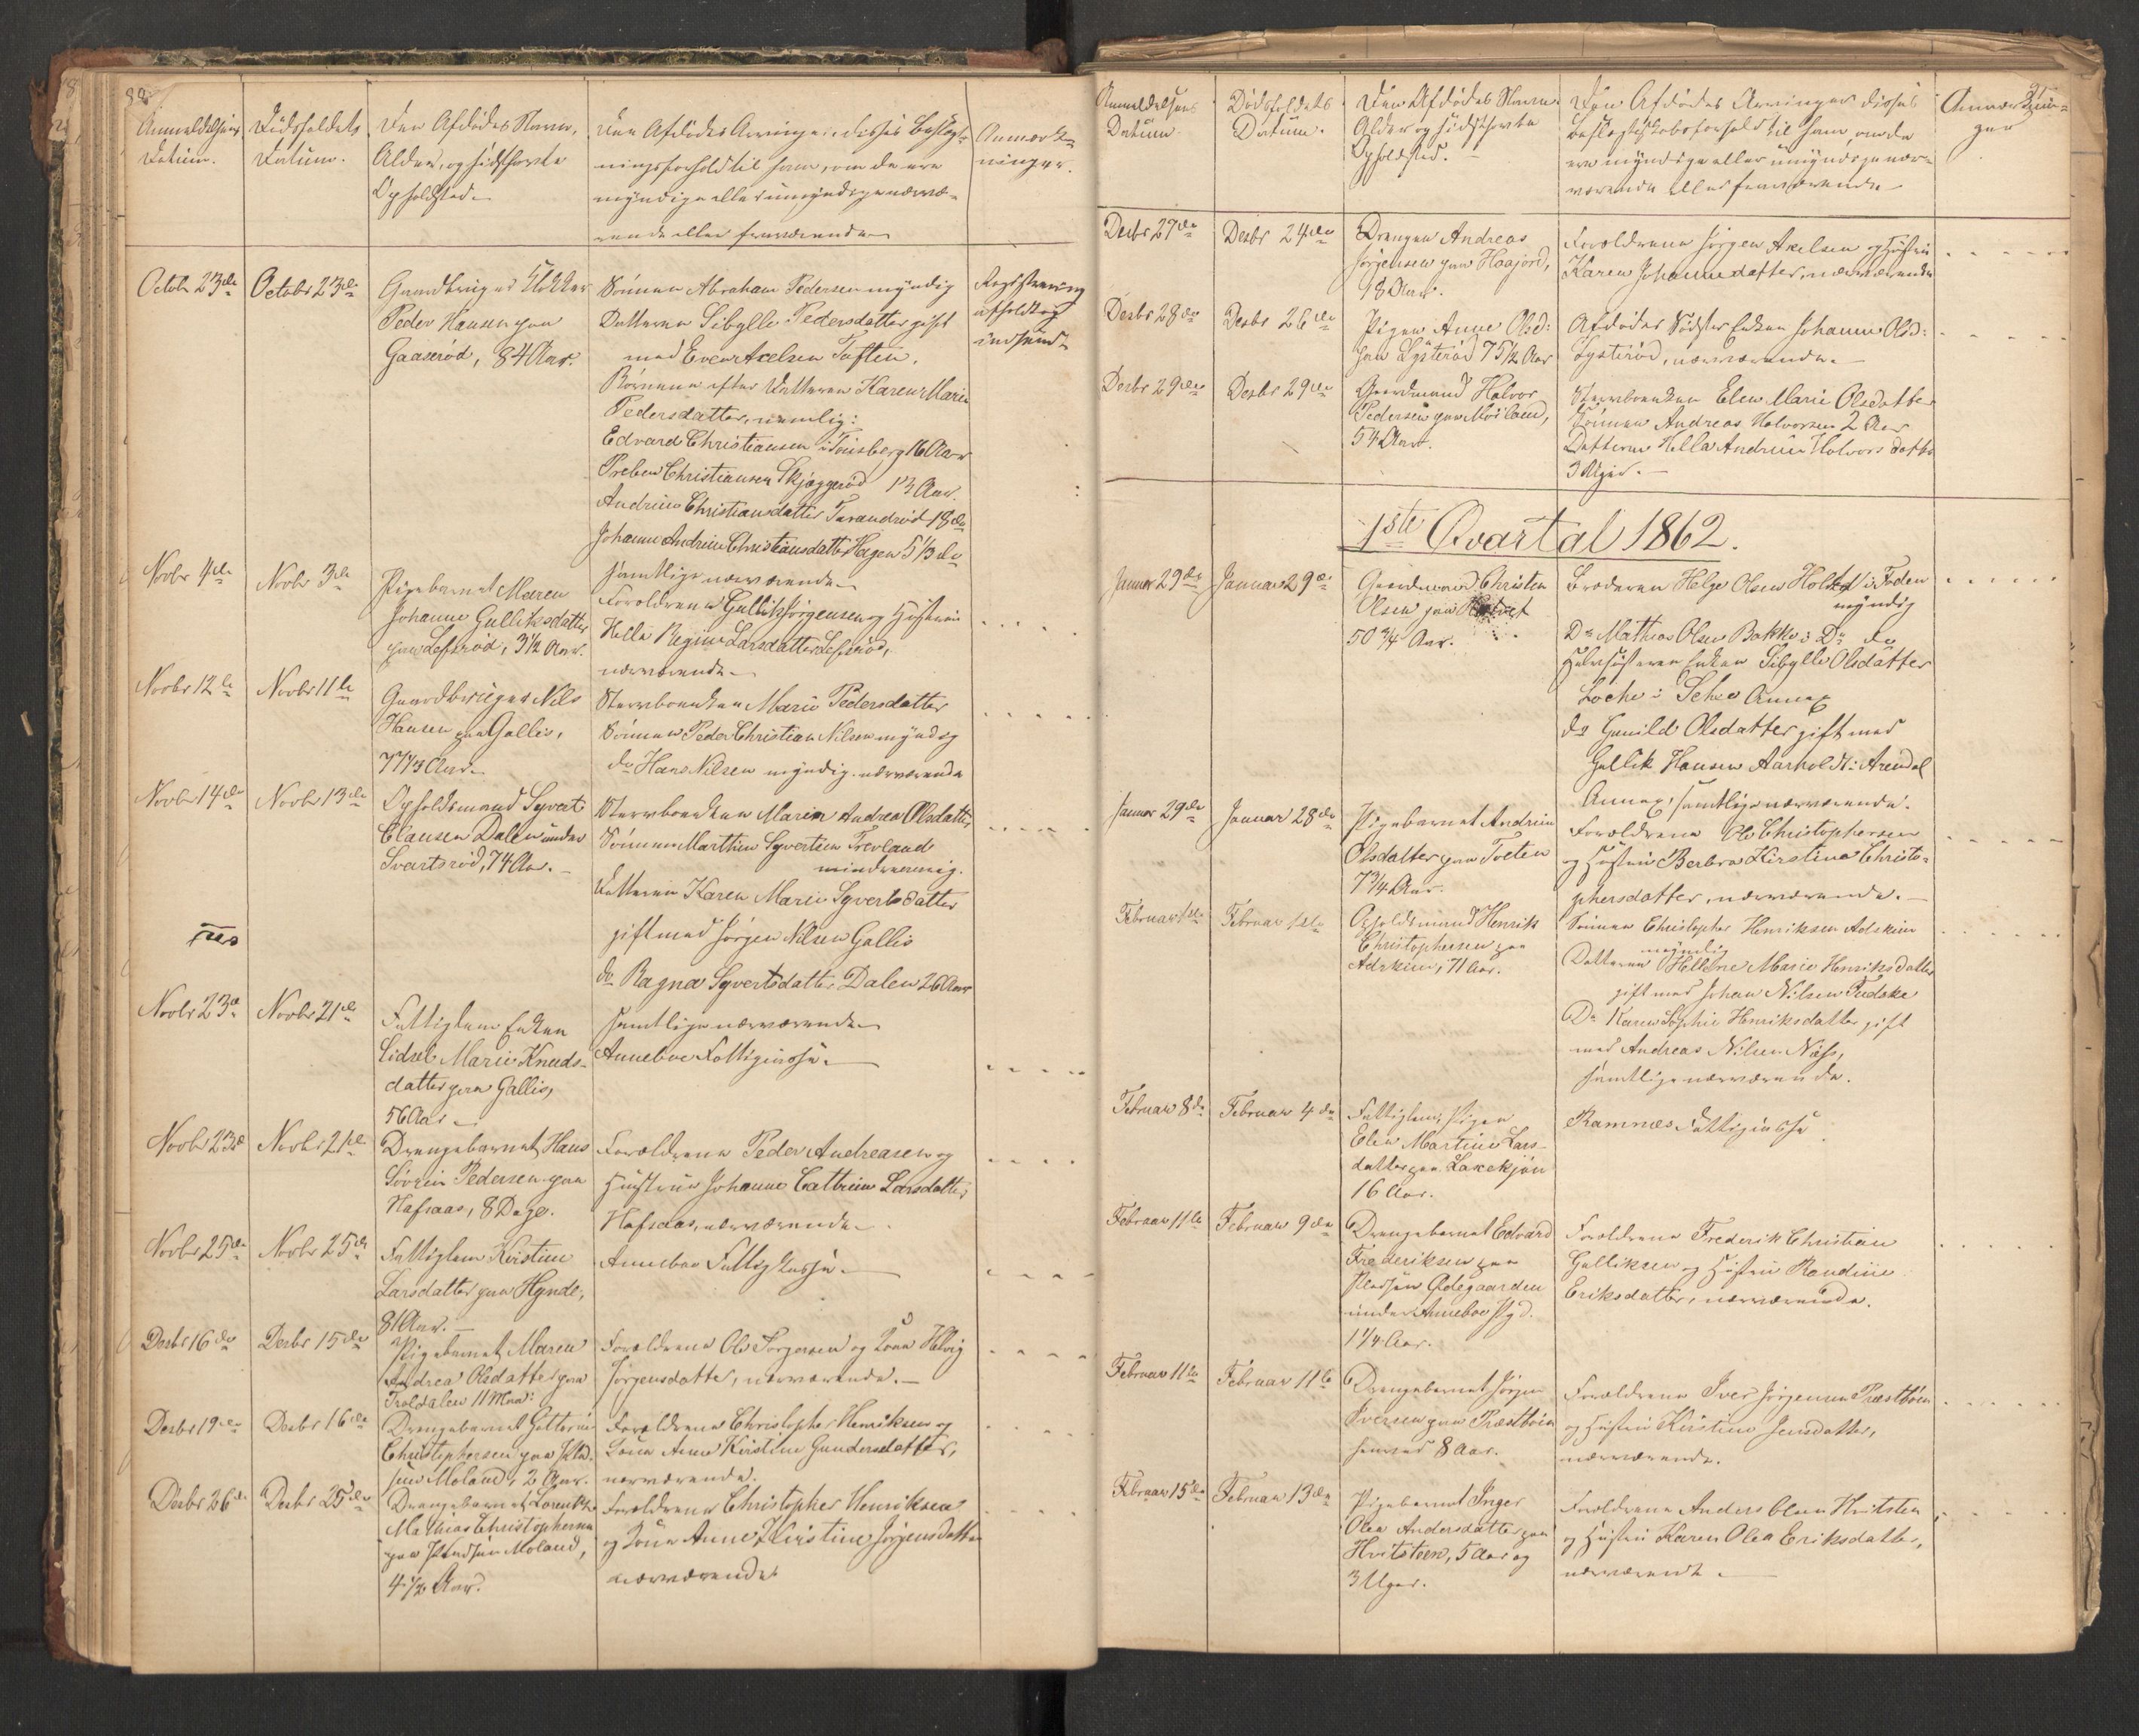 88
Anmeldelsens
Datum.
Dödsfaldets
Datum.
Den Afdödes Navn,
Alder, og sidsthavte
Opholdsted.
Den Afdödes Arvinger, disses beslægt-
ningsforhold til ham, om de ere
myndige eller umyndige nærvæ-
rende eller fraværende
Anmærk-
ninger.
Octobr 23de
Octobr 23de
Gaardbruger Klokker
Peder Hansen paa
Gaaserød, 84 Aar.
Sönnen Abraham Pedersen myndig
Datteren Sibylle Pedersdatter gift
med Even Axelsen Toften.
Börnene efter Datteren Karen Marie
Pedersdatter, nemlig:
Edvard Christiansen i Tönsberg 16 Aar
Preben Christiansen Skjæggerød 13 Aar.
Andrine Christiansdatter Tarandrød 18 do
Johanne Andrine Christiansdatter Hagen 5 1/3 do
samtlige nærværende
Registrering
afholdt og
indsendt
Novbr 4de
Novbr 3de
Pigebarnet Maren
Johanne Gulliksdatter
paa Lefsrød, 3 1/2 Aar.
Forældrene Gullik Jörgensen og Hustrue
Helle Regine Larsdatter Lefsrød,
nærværende
Novbr 12te
Novbr 11te
Gaardbruger Nils
Hansen paa Gallis,
77 1/3 Aar.
Sterbboenken Marie Pedersdatter
Sönnen Peder Christian Nilsen myndig
do Hans Nilsen myndig. nærværende
Novbr 14de
Novbr 13de
Opholdsmand Syvert
Clausen Dalen under
Svartsrød, 74 Aar.
Sterbboenken Maren Andrea Olsdatter
Sönnen Marthin Syvertsen Trevland
mindreaarig.
Datteren Karen Marie Syvertsdatter
gift med Jörgen Nilsen Gallis
do Ragna Syvertsdatter Dalen 26 Aar
samtlige nærværende
Novbr 23de
Novbr 21de
Fattiglem Enken
Lidsel Marie Knuds-
datter paa Gallis,
56 Aar
Anneboe Fattigcasse.
Novbr 23de
Novbr 21de
Drengebarnet Hans
Sövrin Pedersen paa
Hafsaas, 8 Dage.
Forældrene Peder Andreasen og
Hustrue Johanne Cathrine Larsdatter,
Hafsaas, nærværende
Novbr 25de
Novbr 25de
Fattiglem Kirstine
Larsdatter paa Hynde,
81 Aar.
Anneboe Fattigkasse.
Desbr 16de
Desbr 15de
Pigebarnet Maren
Andrea Olsdatter paa
Troldalen 11 Mdr:
Forældrene Ole Torgersen og Kone Helvig
Jörgensdatter, nærværende.
Desbr 19de
Desbr 16de
Drengebarnet
Christophersen paa Plad-
sen Moland, 2 Aar.
Forældrene Christopher Henriksen og
Kone Anne Kirstine Gundersdatter,
nærværende.
Desbr 26de
Desbr 25de
Drengebarnet Lorents
Mathias Christophersen
paa Pladsen Moland,
4 1/2 Aar.
Forældrene Christopher Henriksen
og Kone Anne Kirstine Jörgensdatter
nærværende
Anmeldelsens
Datum
Dödsfaldets
Datum.
Den Afdödes Navn
Alder og sidsthavte
Opholdsted.
Den Afdödes Arvinger disses
Beslægtskabsforhold til ham, om de
ere myndige eller umyndige nær-
værende eller fraværende
Anmærknin-
ger
Desbr 27de
Desbr 24de
Drengen Andreas
Jörgensen paa Haajord,
18 Aar.
Forældrene Jörgen Axelsen og Hustru
Karen Johannedatter, nærværende
Desbr 28de
Desbr 26de
Pigen Anne Olsd:
paa Lysterød 75 1/2 Aar
Afdödes Söster Enken Johanne Olsd:
Lysterød, nærværende.
Desbr 29de
Desbr 29de
Gaardmand Halvor
Pedersen paa Moland,
54 Aar.
Sterbboenken Elen Marie Olsdatter
Sönnen Andreas Halvorsen 2 Aar
Datteren Hella Andrine Halvorsdatter
3 Uger.
1ste Qvartal 1862.
Januar 29de
Januar 29de
Gaardmand Christen
Olsen paa
50 3/4 Aar.
Broderen Helge Olsen Holt i Foden
myndig
Do Mathias Olsen Bakke i Do do
Halvsösteren Enken Sibylle Olsdatter
Loche i Annex
do Gunild Olsdatter gift med
Gullik Hansen Aarholdt i Arendal
Annex, samtlige nærværende.
Januar 29de
Januar 28de
Pigebarnet Andrine
Olsdatter paa Tveten
7 3/4 Aar.
Forældrene Ole Christophersen
og Hustrue Berbra Kirstine Christo-
phersdatter, nærværende.
Februar 1ste
Februar 1ste
Opholdsmand Henrik
Christophersen paa
Adskim, 71 Aar.
Sönnen Christopher Henriksen Adskim
myndig
Datteren Hellene Marie Henriksdatter
gift med Johan Nilsen Tudske
Do Karen Sophie Henriksdatter gift
med Andreas Nilsen Næss,
samtlige nærværende.
Februar 8de
Februar 4de
Fattiglem, Pigen
Elen Martine Lars-
datter paa Lakekjön
16 Aar.
Ramnæs Fattigcasse
Februar 11te
Februar 9de
Drengebarnet Edvard
Frederiksen paa
Pladsen Ødegaarden
under Anneboe Pgd.
1 1/4 Aar.
Forældrene Frederik Christian
Gulliksen og Hustrue Randine
Eriksdatter, nærværende.
Februar 11te
Februar 11te
Drengebarnet Jörgen
Iversen paa Præstbøen
henved 8 Aar.
Forældrene Iver Jörgensen Præstbøen
og Hustrue Kirstine Jensdatter,
nærværende.
Februar 15de
Februar 13de
Pigebarnet Inger
Olea Andersdatter paa
Hvitsteen, 5 Aar og
3 Uger.
Forældrene Anders Olsen Hvitsten
og Hustrue Karen Olea Eriksdatter,
nærværende.